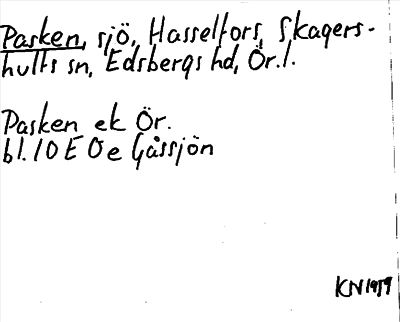 Pasken, sjö, Hasselfors, Skagers-
hults sn, Edsbergs hd, Ör.l.
Pasken ek Ör.
bl.10E 0e Gåssjön
KN1979